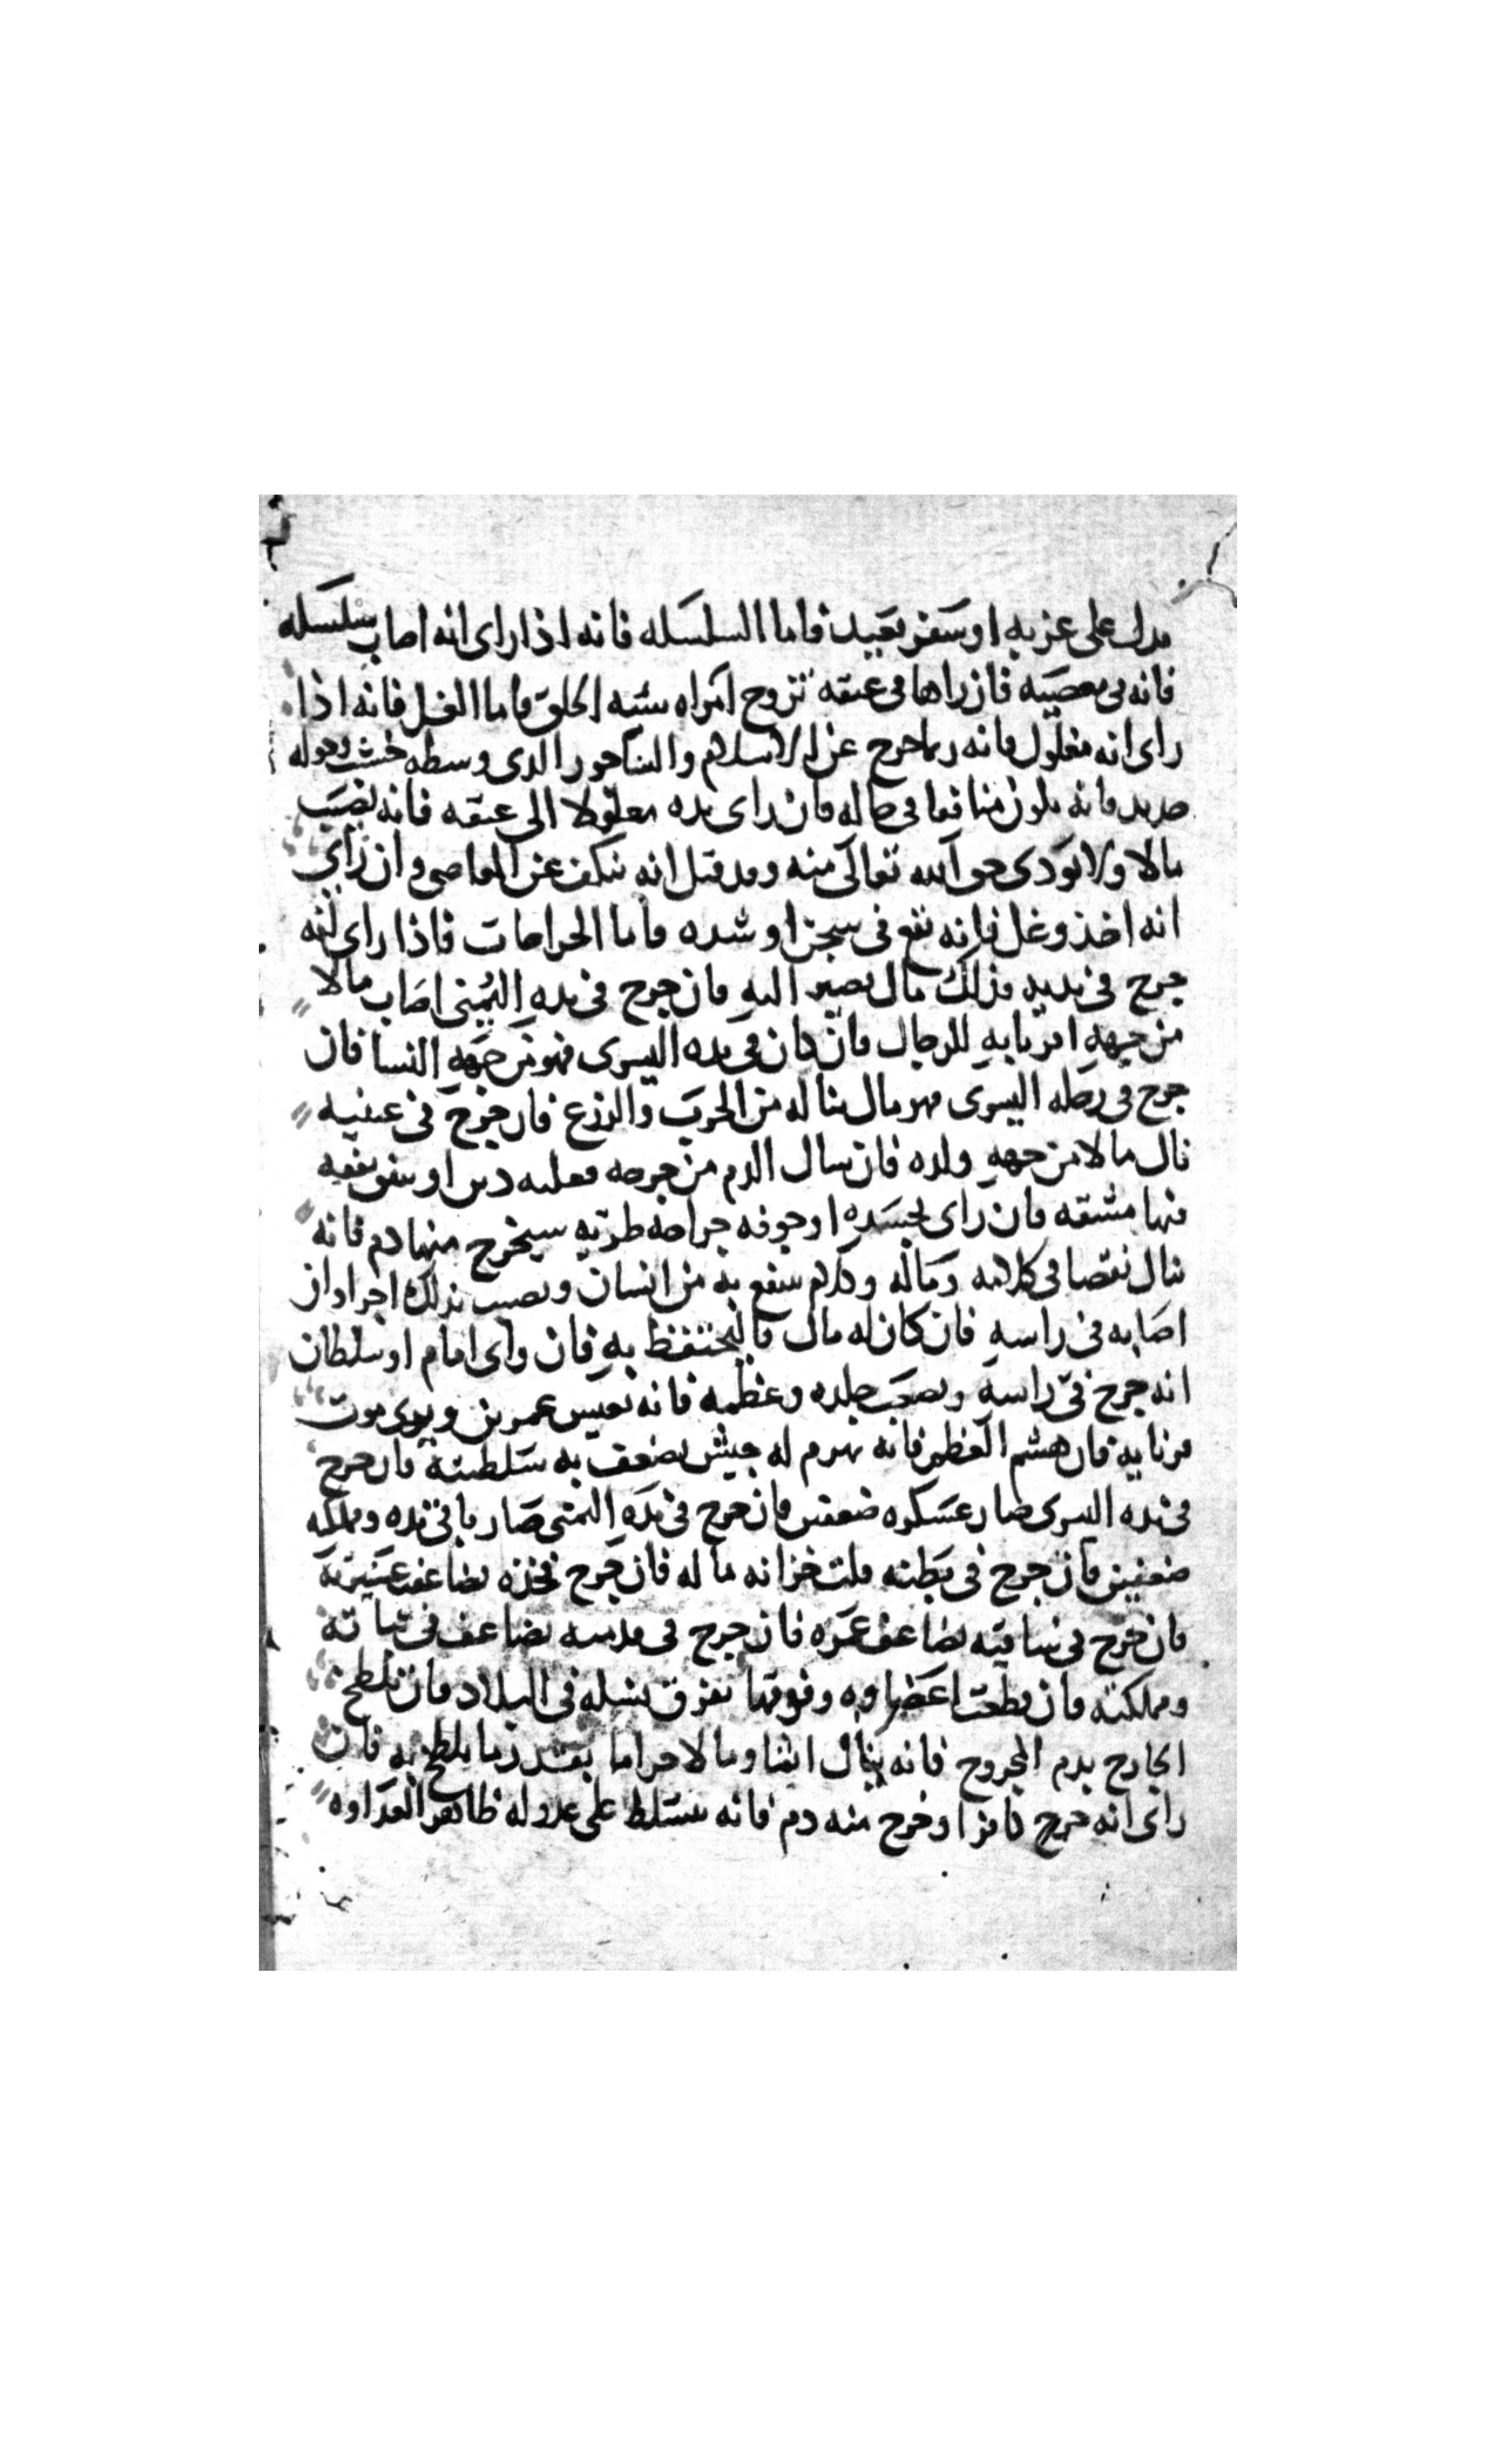 يدل على عزبه او سفر بعيد فاما السلسله فانه اذا راى انه اصاب سلسله
فانه فى معصيه فان راها فى عنقه تزوج امراه سيئه الخلق فاما الغل فانه اذا
راى انه مغلول فانه ربما خرج عن الاسلام والساجور الدى وسطه خشب وحوله
حديد فانه يكون منافقا فى حاله فان راى يده مغلولا الى عنقه فانه يصيب
مالا ولا يودى حق الله تعالى منه وقد قيل انه ينكف عن المعاصى وان راى
انه اخذ وغل فانه يقع فى سجن او شده فاما الجراحات فاذا راى انه
جرح فى يديه فذلك مال يصير اليه فان جرح فى يده اليمنى اصاب مالا
من جهه اقربايه للرجال فان كان فى يده اليسرى فهو من جهه النسا فان
جرح فى رجله اليسرى فهو مال يناله من الحرث والزرع فان جرح فى عينيه
نال مالا من جهه ولده فان سال الدم من جرحه فعليه دين او ينفق نفقه
فيها مشقه فان راى بجسده او جوفه جراحه طريه سيخرج منها دم فانه
ينال نقصا فى كلامه وماله وكلام ينفع به من انسان ويصيب بذلك اجرا وان
اصابه فى راسه فان كان له مال فاليحتفظ به فان راى امام او سلطان
انه جرح فى راسه وبضعت جلده وعظمه فانه يعيش عمرين ويرى موت
قرنايه فان هشم العظم فانه يهزم له جيش يضعف به سلطنته فان جرح
فى يده اليسرى صار عسكره ضعفين فان جرح فى يده اليمنى صار ما فى يده وملكه
ضعفين فان جرح فى بطنه ملت خزانه ماله فان جرح فخذه يضاعف عشيرته
فان جرح فى ساقيه يضاعف عمره فان جرح فى قدميه يضاعف فى ثباته
ومملكته فان قطعت اعضاوه وفرقها تفرق نسله فى البلاد فان تلطخ
الجارح بدم المجروح فانه ينال اثما ومالا حراما بقدر ما تلطخ به فان
راى انه جرح كافرا وخرج منه دم فانه يتسلط على عدو له ظاهر العداوه